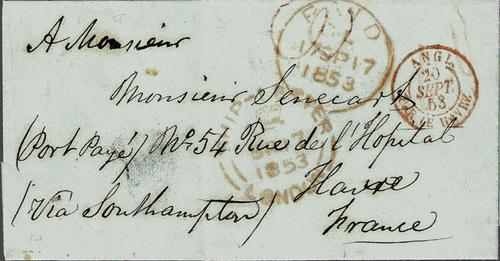 A Monsieur
Monsieur Senecart
(Port Payé) No. 54 Rue de l'Hopital
Havre
(Via Southampton) France
PAID
SP 17
1853
1853
ANGL.
20
SEPT.
53